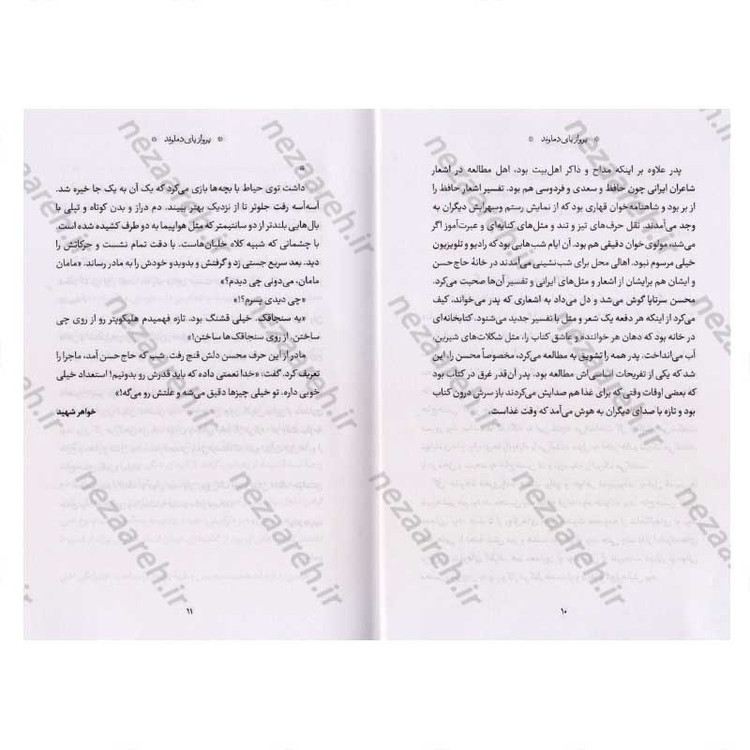 پرواز پای دماوند
پدر علاوه بر اینکه مداح و ذاکر اهل‌بیت بود، اهل مطالعه در اشعار
شاعران ایرانی چون حافظ و سعدی و فردوسی هم بود. تفسیر اشعار حافظ را
از بر بود و شاهنامه‌خوان قهاری بود که از نمایش رستم و سهرابش دیگران به
وجد می‌آمدند. نقل حرف‌های تیز و تند و مثل‌های کنایه‌ای و عبرت‌آموز اگر
می‌شد، مولوی‌خوان دقیقی هم بود. آن ایام شب‌هایی بود که رادیو و تلویزیون
خیلی مرسوم نبود. اهالی محل برای شب‌نشینی می‌آمدند در خانهٔ حاج‌حسن
و ایشان هم برایشان از اشعار و مثل‌های ایرانی و تفسیر آن‌ها صحبت می‌کرد.
محسن سرتاپا گوش می‌شد و دل می‌داد به اشعاری که پدر می‌خواند. کیف
می‌کرد از اینکه هر دفعه یک شعر و مثل با تفسیر جدید می‌شنود. کتابخانه‌ای
در خانه بود که دهان هر خواننده و عاشق کتاب را، مثل شکلات‌های شیرین،
آب می‌انداخت. پدر همه را تشویق به مطالعه می‌کرد، مخصوصاً محسن را،
شد که یکی از تفریحات اساسی‌اش مطالعه بود. پدر آن‌قدر غرق در کتاب بود
که بعضی اوقات وقتی که برای غذا هم صدایش می‌کردند باز سرش درون کتاب
بود و تازه با صدای دیگران به هوش می‌آمد که وقت غذاست.
۱۰
پرواز پای دماوند
داشت توی حیاط با بچه‌ها بازی می‌کرد که یک آن به یک جا خیره شد.
آسه‌آسه رفت جلوتر تا از نزدیک بهتر ببیند. دم دراز و بدن کوتاه و تپلی با
بال‌هایی بلندتر از دو سانتیمتر که مثل هواپیما به دو طرف کشیده شده است.
با چشمانی که شبیه کلاه خلبان‌هاست. با دقت تمام نشست و حرکاتش را
دید. بعد سریع جستی زد و گرفتش و بدوبدو خودش را به مادر رساند. «مامان
مامان، می‌دونی چی دیدم؟»
«چی دیدی پسرم؟!»
«یه سنجاقک. خیلی قشنگ بود. تازه فهمیدم هلیکوپتر رو از روی چی
ساختن. از روی سنجاقک‌ها ساختن!»
مادر از این حرف محسن دلش قنج رفت. شب که حاج‌حسن آمد، ماجرا را
تعریف کرد. گفت: «خدا نعمتی داده که باید قدرش رو بدونیم! استعداد خیلی
خوبی داره. تو خیلی چیزها دقیق می‌شه و علتش رو می‌گه!»
خواهر شهید
۱۱
nezaareh.ir